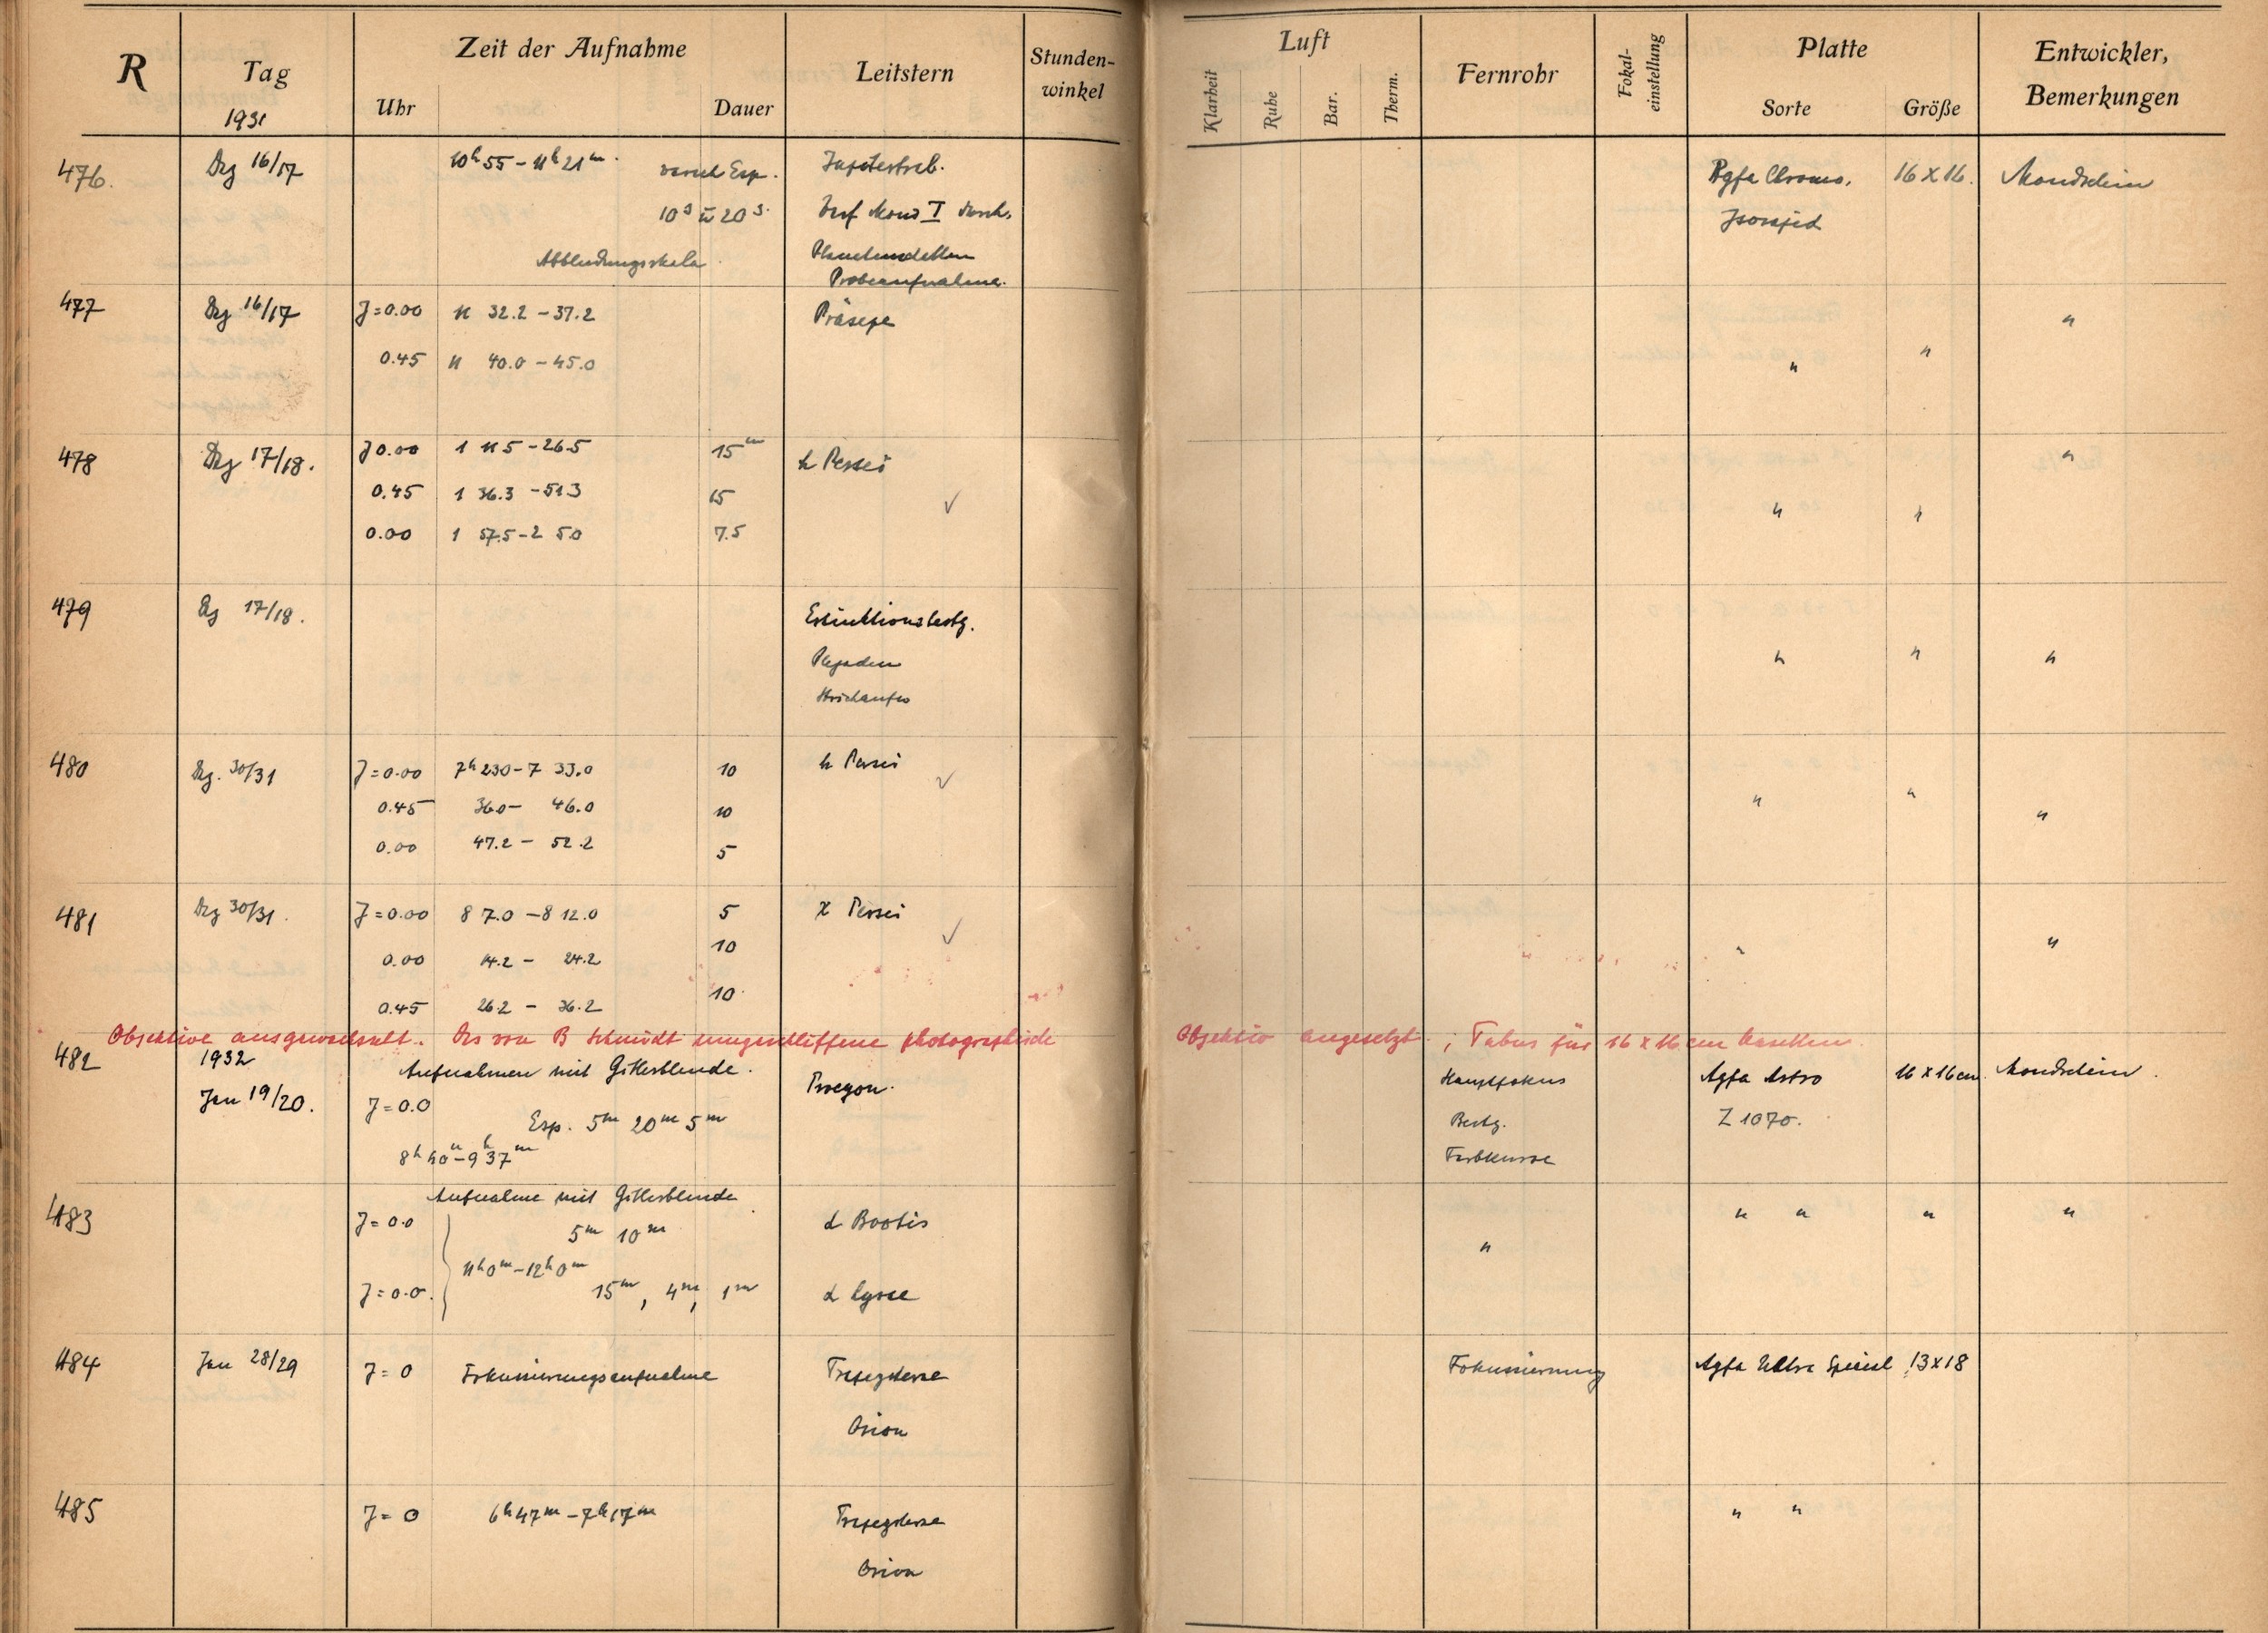 R Tag Zeit der Aufnahme Leitstern Stunden-winkel Luft Fernrohr Fokal-einstellung Platte Entwickler, Bemerkungen
1931 Uhr Dauer Klarheit Ruhe Bar. Therm. Sorte Größe
476. Dez 16/17 10h 55 - 11h 21m. Esp. Agfa Chromo. 16 x 16. Mondschein
10s u 20s. Mond I Isorapid
Abblendungsskala
Probeaufnahme.
477 Dez 16/17 J=0.00 11 32.2 - 37.2 Präsepe "
0.45 11 40.0 - 45.0 " "
478 Dez 17/18. J 0.00 1 11 5 - 26.5 15m h Persei "
0.45 1 36.3 - 51 3 15 ✓ " "
0.00 1 57.5 - 2 5.0 7.5
479 Dz 17/18. Extinktionsbestg.
Plejaden " " "
Strichaufn
480 Dz. 30/31 J=0.00 7h 23 0 - 7 33.0 10 h Persei ✓ " "
0.45 36 0 - 46.0 10 "
0.00 47.2 - 52.2 5
481 Dez 30/31. J=0.00 8 7.0 - 8 12.0 5 χ Persei ✓ " "
0.00 14.2 - 24.2 10
0.45 26.2 - 36.2 10
Objektive ausgewechselt. Das von B Schmidt umgeschliffene photographische Objektiv angesetzt; Tubus für 16 x 16 cm
482 1932 Aufnahmen mit Gitterblende. Procyon. Hauptfokus Agfa Astro 16 x 16 cm. Mondschein.
Jan 19/20. J=0.0 Esp. 5m 20m 5m Bestg. Z 1070.
8h 40m - 9h 37m Farbkurve
483 Aufnahme mit Gitterblende
J=0.0 5m 10m α Bootis " " " " "
11h 0m - 12h 0m
J=0.0. 15m, 4m, 1m α Lyrae
484 Jan 28/29 J=0 Fokussierungsaufnahme Trapezsterne Fokussierung Agfa Ultra Spezial 13x18
Orion
485 J=0 6h 47m - 7h 17m Trapezsterne " "
Orion